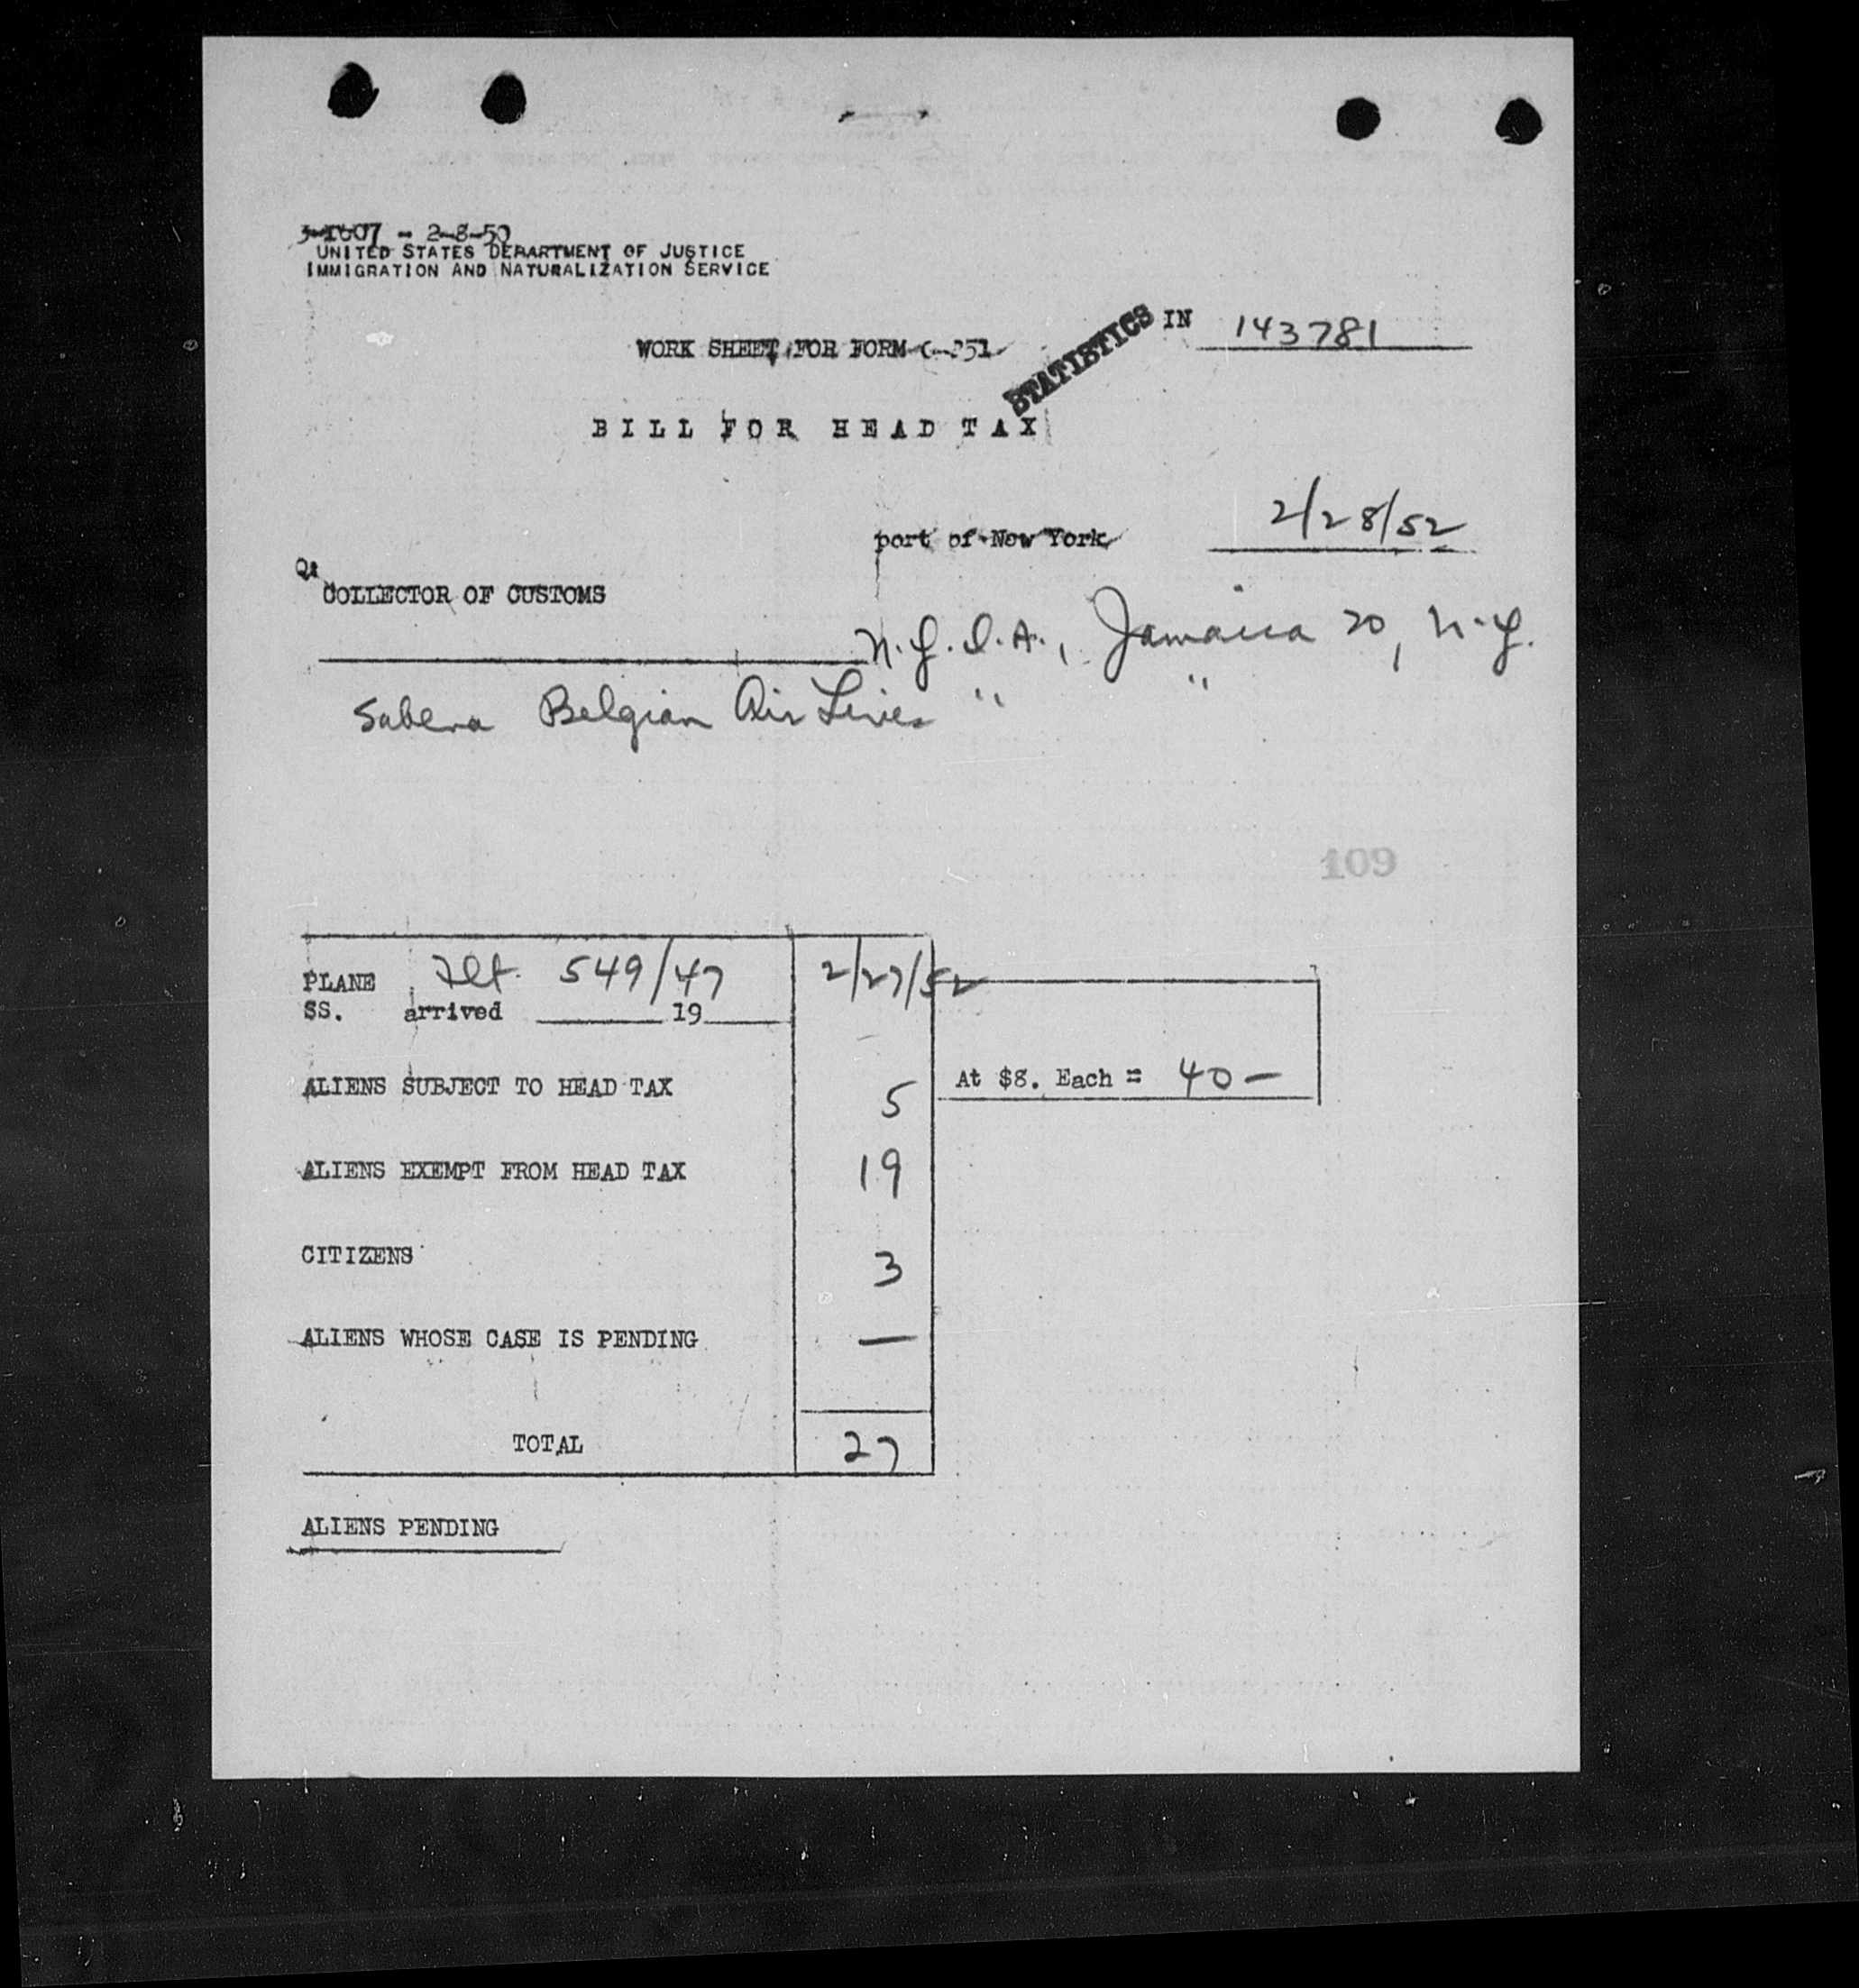 3-1607 - 2-8-50
UNITED STATES DEPARTMENT OF JUSTICE
IMMIGRATION AND NATURALIZATION SERVICE
STATISTICS IN 143781
WORK SHEET FOR FORM C-251
BILL FOR HEAD TAX
port of New York 2/28/52
COLLECTOR OF CUSTOMS
N.Y.I.A., Jamaica 20, N.Y.
Sabena Belgian Air Lines " "
109
PLANE Flt. 549/47 2/27/52
SS. arrived 19
ALIENS SUBJECT TO HEAD TAX 5 At $8. Each = 40 —
ALIENS EXEMPT FROM HEAD TAX 19
CITIZENS 3
ALIENS WHOSE CASE IS PENDING —
TOTAL 27
ALIENS PENDING